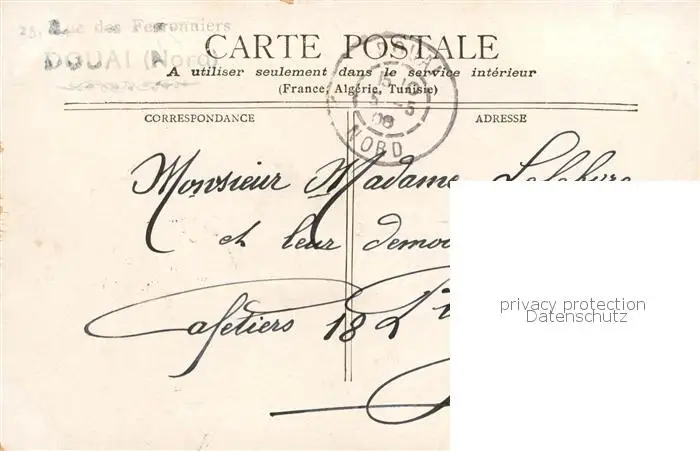 25, Rue des Ferronniers
DOUAI (Nord)
CARTE POSTALE
A utiliser seulement dans le service intérieur
(France, Algérie, Tunisie)
DOUAI
15
5 -5
08
NORD
CORRESPONDANCE
ADRESSE
Monsieur Madame Lefebvre
et leur demoi
Cafetiers 182
privacy protection
Datenschutz